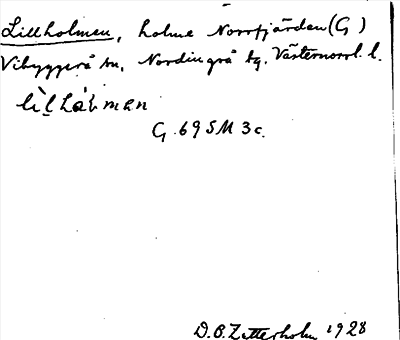 Lillholmen, holme Norrfjärden (G)
Vibyggerå sn, Nordingrå tg. Västernorrl. l.
G. 69 SM 3 c.
D.O. Zetterholm 1928